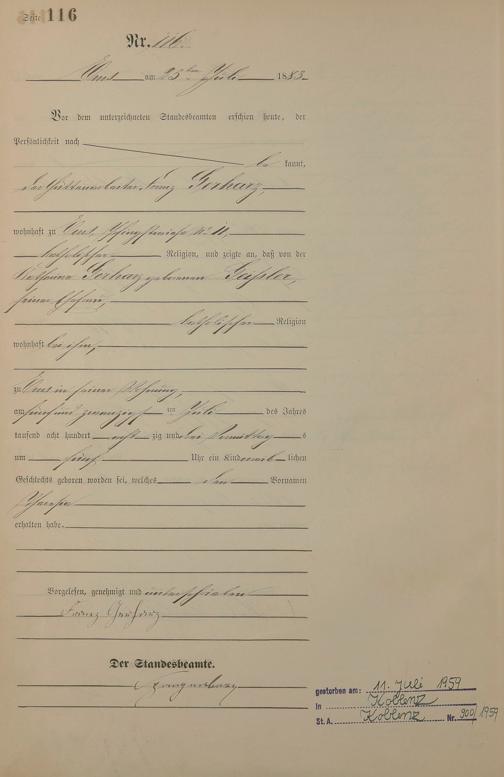 Seite 116
Nr. 116.
Ems am 25ten Juli 1883.
Vor dem unterzeichneten Standesbeamten erschien heute, der
Persönlichkeit nach
be kannt,
der Hüttenarbeiter Franz Gerharz,
wohnhaft zu Ems, No 11,
katholischer Religion, und zeigte an, daß von der
Katharina Gerharz geborenen Geissler,
seiner Ehefrau,
katholischer Religion
wohnhaft bei ihm,
zu Ems in seiner Wohnung,
am fünf und zwanzigsten Juli des Jahres
tausend acht hundert acht zig und drei Vormittags
um fünf Uhr ein Kind weib lichen
Geschlechts geboren worden sei, welches den Vornamen
Therese
erhalten habe.
Vorgelesen, genehmigt und unterschrieben
Franz Gerharz
Der Standesbeamte.
gestorben am: 11. Juli 1959
in Koblenz
St. A. Koblenz Nr. 900/1959